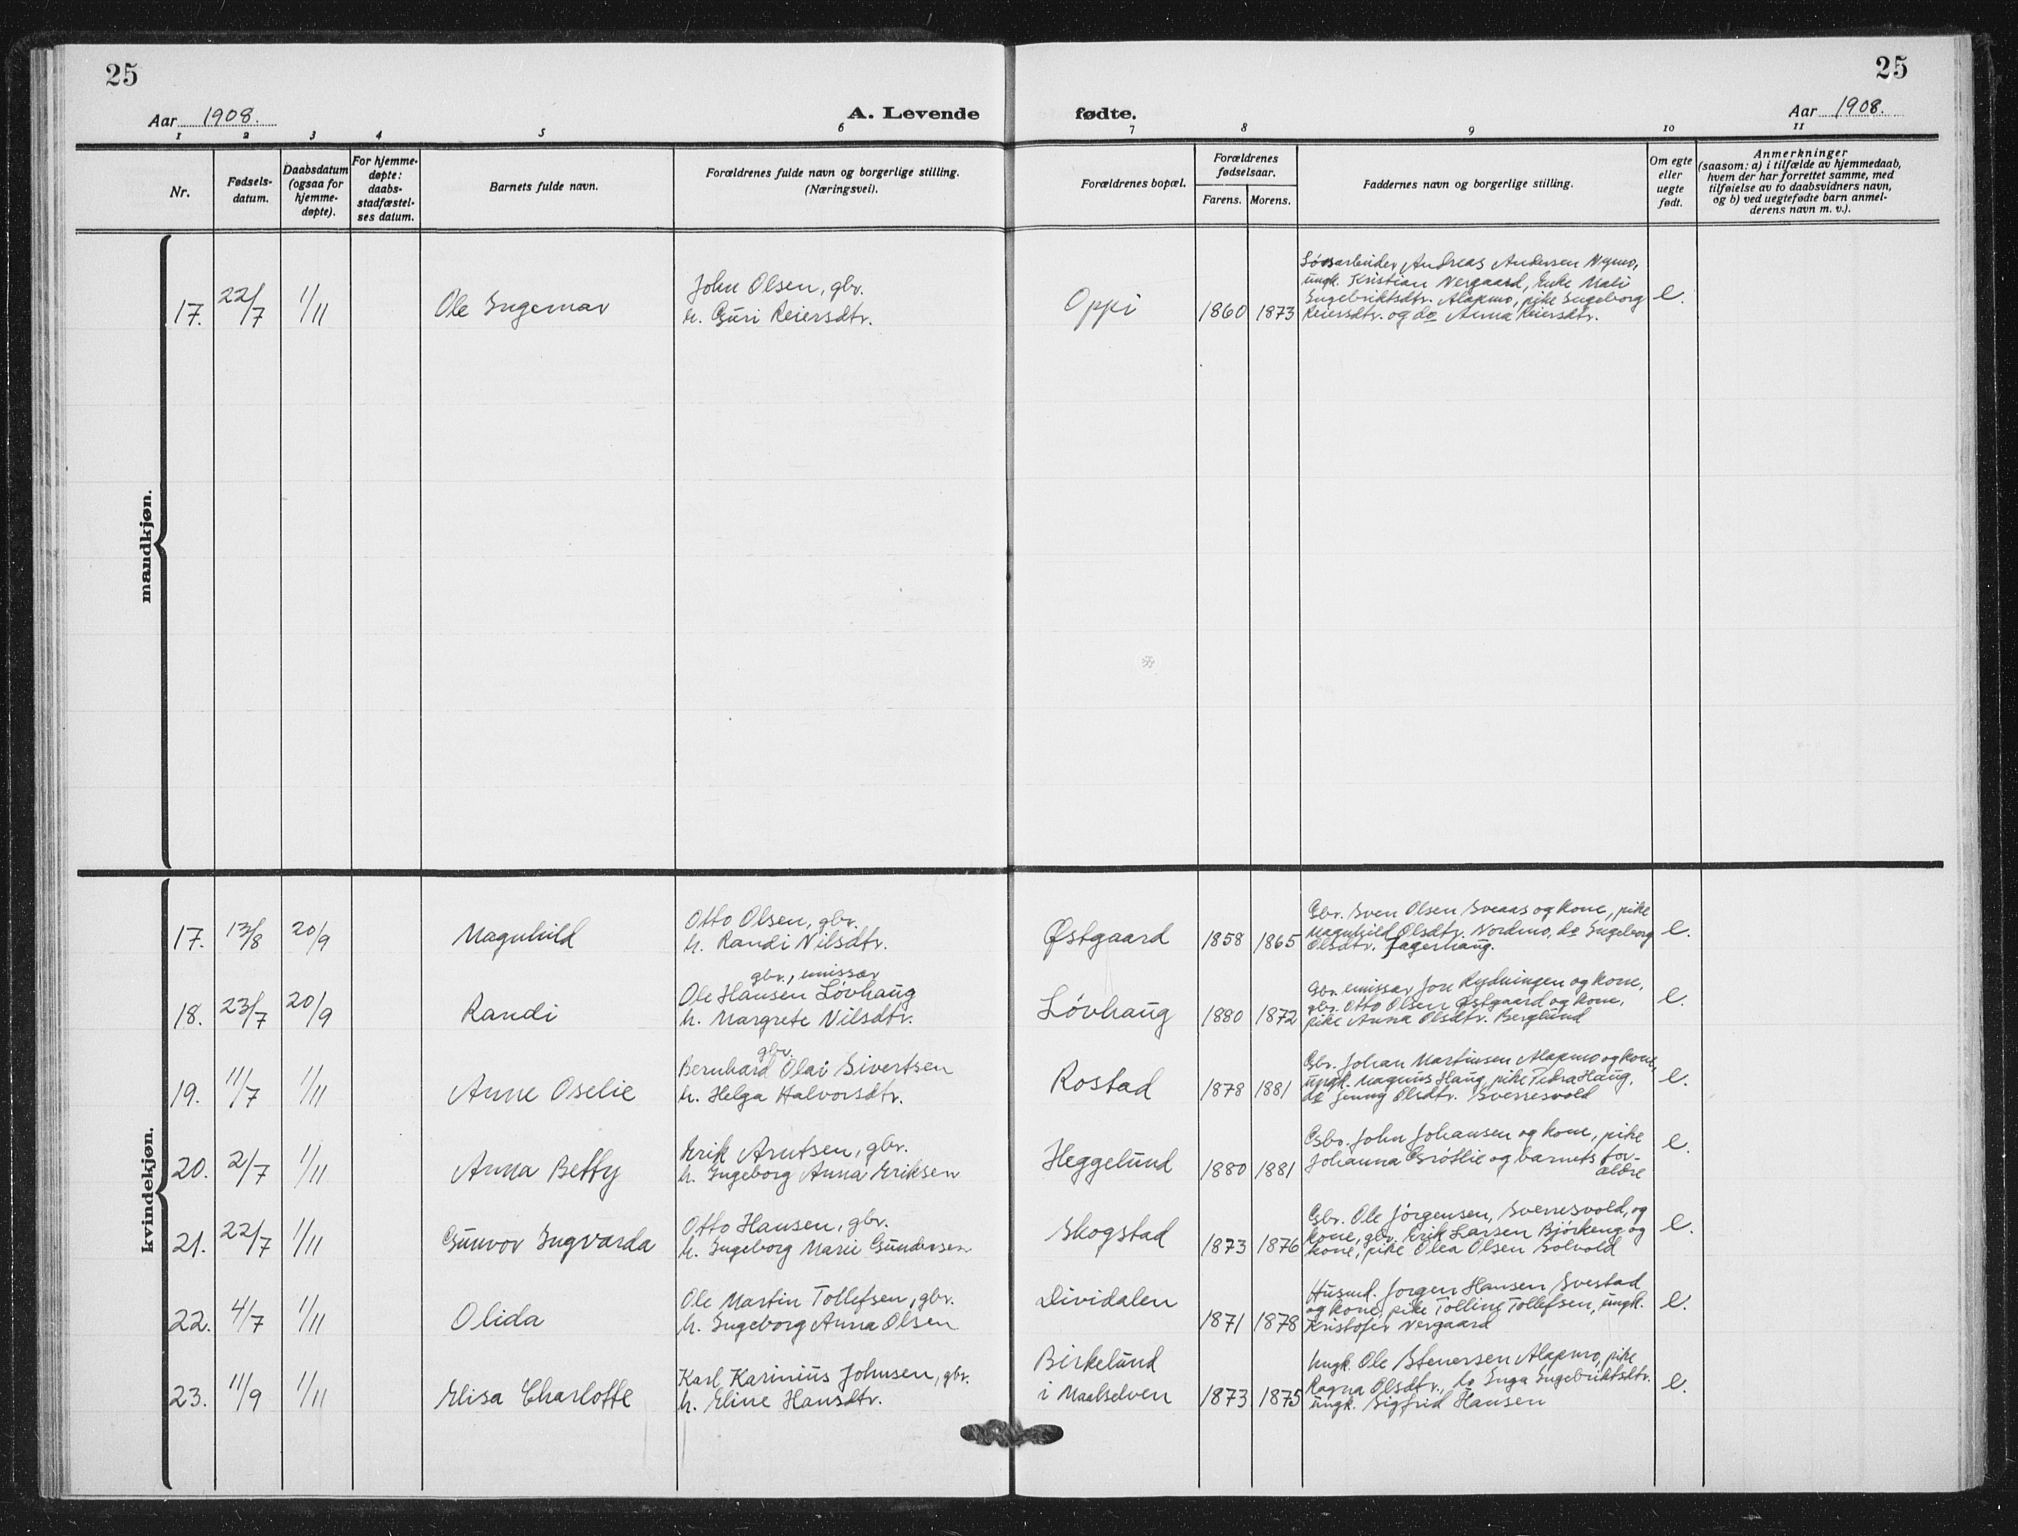 25
25
Aar 1908.
A. Levende
fødte.
Aar 1908.
1 2 3 4 5 6 7 8 9 10 11
Nr.
Fødsels-
datum.
Daabsdatum
(ogsaa for
hjemme-
døpte).
For hjemme-
døpte:
daabs-
stadfæstel-
ses datum.
Barnets fulde navn.
Forældrenes fulde navn og borgerlige stilling.
(Næringsvei).
Forældrenes bopæl.
Forældrenes
fødselsaar.
Farens. Morens.
Faddernes navn og borgerlige stilling.
Om egte
eller
uegte
født.
Anmerkninger
(saasom: a) i tilfælde av hjemmedaab,
hvem der har forrettet samme, med
tilføielse av to daabsvidners navn,
og b) ved uegtefødte barn anmel-
derens navn m. v.).
mandkjøn.
17. 22/7 1/11 Ole Ingemar
John Olsen, gbr.
h. Guri Reiersdtr.
Oppi 1860 1873
Løsarbeider Andreas Andersen Nymo,
ungk. Kristian Vergaard, Enke Mali
Engebriktsdtr. Alapmo, pike Ingeborg
Reiersdtr. og do Anna Reiersdtr.
e.
kvindekjøn.
17. 13/8 20/9 Magnhild
Otto Olsen, gbr.
h. Randi Nilsdtr.
Østgaard 1858 1865
Gbr. Sven Olsen Sveaas og kone, pike
Magnhild Olsdtr. Nordmo, do Ingeborg
Olsdtr. Fagerhaug.
e.
18. 23/7 20/9 Randi
gbr., emissær
Ole Hansen Løvhaug
h. Margrete Nilsdtr.
Løvhaug 1880 1872
Gbr. emissær Jon Rydningen og kone,
gbr. Otto Olsen Østgaard og kone,
pike Anna Olsdtr. Berglund
e.
19. 11/7 1/11 Anne Oselie
gbr.
Bernhard Olai Sivertsen
h. Helga Halvorsdtr.
Rostad 1878 1881
Gbr. Johan Martinsen Alapmo og kone,
ungk. Magnus Haug, pike Petra Haug,
do Jenny Olsdtr. Sverresvold
e.
20. 2/7 1/11 Anna Betty
Erik Arntsen, gbr.
h. Ingeborg Anna Eriksen
Heggelund 1880 1881
Gbr. John Johansen og kone, pike
Johanna Grøtlie og barnets for-
ældre
e.
21. 22/7 1/11 Gunvor Ingvarda
Otto Hansen, gbr.
h. Ingeborg Marie Gundersen
Skogstad 1873 1876
Gbr. Ole Jørgensen, Sverresvold, og
kone, gbr. Erik Larsen Bjørkeng og
kone, pike Olea Olsen Solvold
e.
22. 4/7 1/11 Olida
Ole Martin Tollefsen, gbr.
h. Ingeborg Anna Olsen
Dividalen 1871 1878
Husmd. Jørgen Hansen Svestad
og kone, pike Tolline Tollefsen, ungk.
Kristofer Vergaard
e.
23. 11/9 1/11 Elisa Charlotte
Karl Karinius Johnsen, gbr.
h. Eline Hansdtr.
Birkelund
i Maalselven 1873 1875
Ungk. Ole Stenersen Alapmo, pike
Ragna Olsdtr., do Inga Ingebriktsdtr.
ungk. Sigfrid Hansen
e.